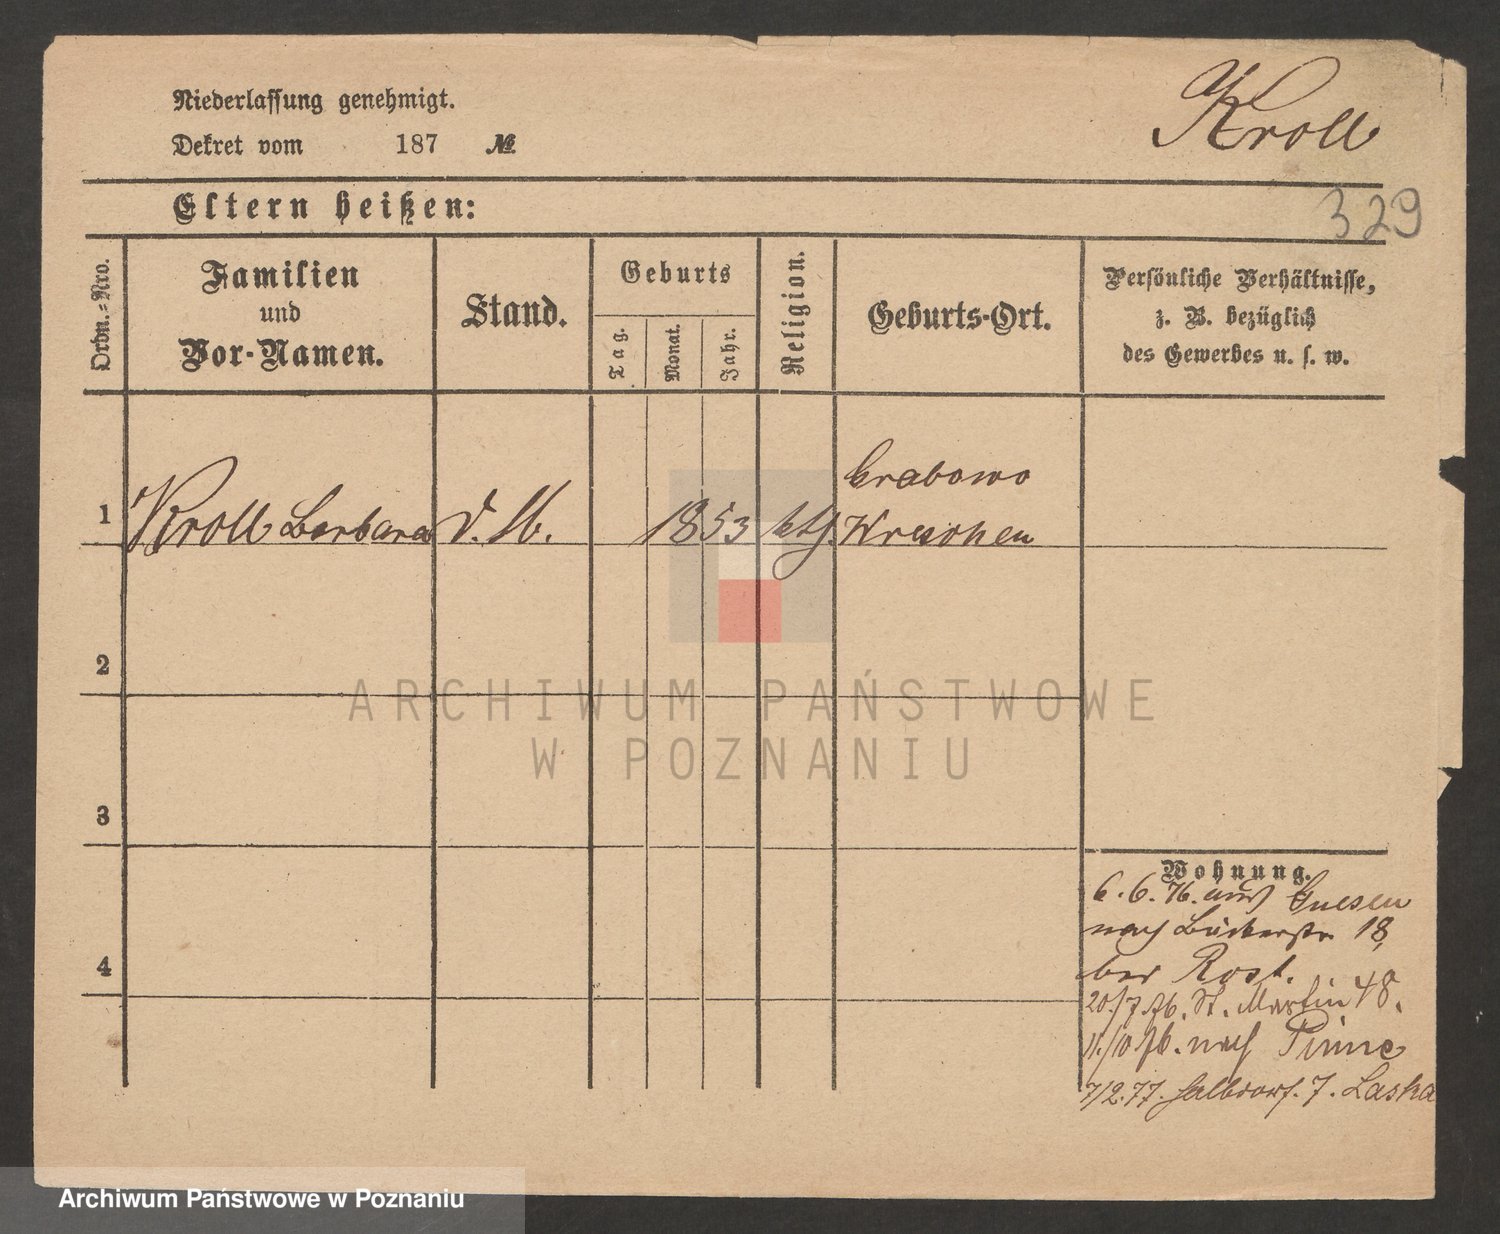 Niederlassung genehmigt.
Kroll
Dekret vom 187 №
Eltern heißen:
329
Ordn.-Nro.
Familien
und
Vor-Namen.
Stand.
Geburts
Tag.
Monat.
Jahr.
Religion.
Geburts-Ort.
Persönliche Verhältnisse,
z. B. bezüglich
des Gewerbes u. s. w.
Grabowo
1 Kroll Barbara d. M. 1853 kth. Wreschen
2
ARCHIWUM PAŃSTWOWE
W POZNANIU
3
Wohnung.
6.6.76. aus Gnesen
nach 18,
4
bei Rost.
20/7 76. St. Martin 48.
11./10 76. nach Pinne
7/2.77. Halbdorf. 7. Laska
Archiwum Państwowe w Poznaniu